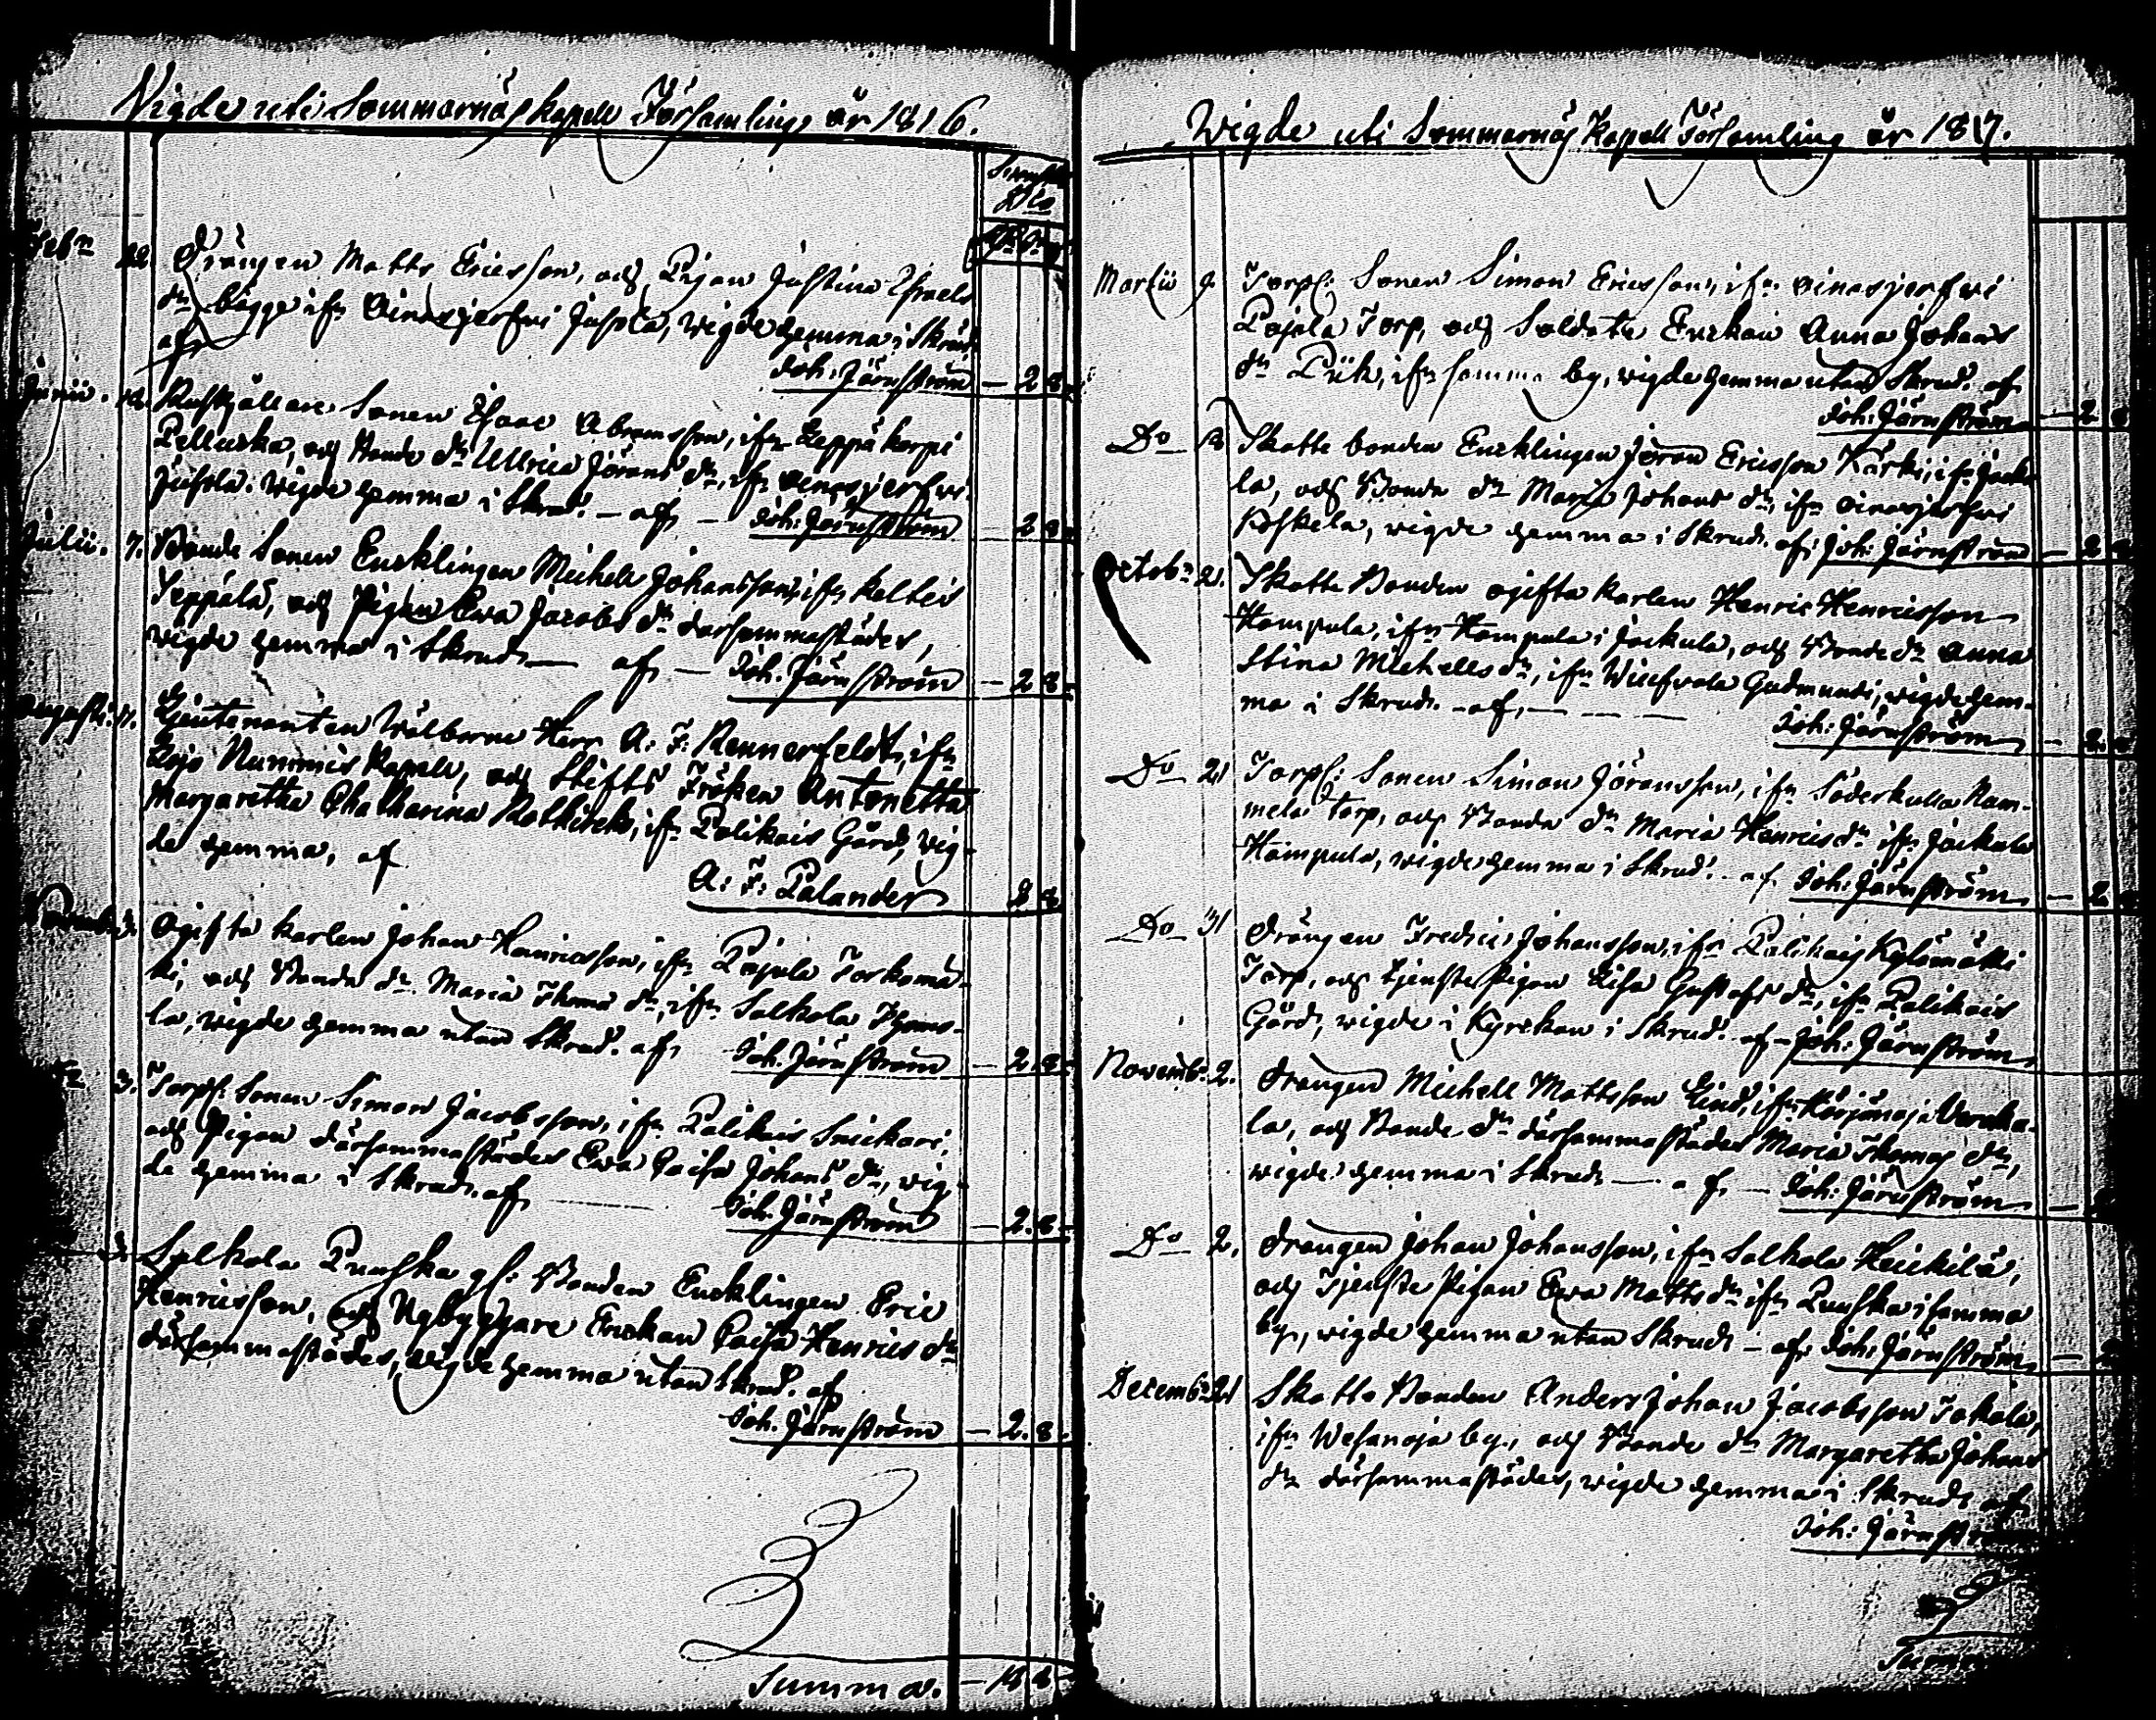 Wigde uti Sommarnäs kapell Församling år 1816.
Febr. 22 Drängen Matts Ericsson, och Pigan Justina Israels
dr bägge ifr. Oinasjerfvi Jussila, wigde hemma i Skrud,
af Joh: Järnström — 2 8.
Junii. Rusthållare Sonen Isaac Abramsson, ifr. Leppäkorpi
Pelluska, och Bonde dr. Ullrica Jörans dr. ifr. Oinasjerfvi
Jussila. wigde hemma i Skrud. — af — Joh: Järnström — 2 8.
Julii. 7. Bonde Sonen Encklingen Michell Johansson, ifr. Keltis
Seppälä, och Pigan Ewa Jacobs dr. därsammastädes,
wigde hemma i Skrud. — af — Joh. Järnström — 2 8.
Augusti. 11. Lieutenanten Wälborne Herr A: F: Rennerfeldt, ifr.
Lojo Nummis Kapell, och Stifts Fröken Antonetta
Margaretha Chatharina Rotkirck, ifr. Palikais Gård, wig-
de hemma, af
A: F: Palander 2 8
3. Ogifta karlen Johan Henricsson, ifr. Pajula Torkomä-
ki, och Bonde dr. Maria Thomas dr., ifr. Salkola
la, wigde hemma utan Skrud. af Joh. Järnström — 2. 8.
3. Torp: Sonen Simon Jacobsson, ifr. Palikais Snickari,
och Pigan därsammastädes Ewa Caisa Johans dr., wig-
de hemma i Skrud. af — Joh. Järnström — 2. 8.
3. Salkola Puuska gl: Bonden Encklingen Eric
Henricsson, och Nybyggare Enckan Caisa Henrics dr
därsammastädes, wigde hemma utan Skrud. af
Joh. Järnström — 2. 8.
Summa.
Wigde uti Sommarnäs Kapell Församling år 1817.
Martii 9. Torp: Sonen Simon Ericsson, ifr. Oinasjerfvi
Pajala Torp, och Soldats Enckan Anna Johans
dr. Piik, ifr. samma by, wigde hemma utan Skrud. af
Joh: Järnström — 2 8
Do Skatte bonden Encklingen Jöran Ericsson Kärki, ifr. Jacku-
la, och Bonde dr. Maria Johans dr., ifr. Oinasjerfvi
Koskela, wigde hemma i Skrud. af: Joh: Järnström — 2 8
Octobr. 21. Skatte Bonden ogifta karlen Henric Henricsson
Hompula, ifr. Hompula i Jackula, och Bonde dr. Anna
Stina Michells dr., ifr. Gudmunds, wigde hem-
ma i Skrud. — af, — Joh: Järnström — 2. 8
Do 21 Torp: Sonen Simon Jöransson, ifr. Söderkulla Ram-
mela torp, och Bonde dr. Maria Henrics dr. ifr. Jackula
Hompula, wigde hemma i Skrud. af. Joh: Järnström — 2 8
Do 31 Drängen Fredric Johansson, ifr. Palikais Kylämäki
Torp, och tjenste pigan Lisa Gustafs dr., ifr. Palikais
Gård, wigde i Kyrckan i Skrud. af — Joh: Järnström.
Novemb: 2. Drängen Michell Mattsson Lind, ifr. Karjanoja
la, och Bonde dr. därsammastädes Maria Thomas dr.,
wigde hemma i Skrud. — af. — Joh: Järnström
Do 2. Drängen Johan Johansson, ifr. Salkola Heickilä,
och Tjenste Pigan Ewa Matts dr. ifr. Puuska i samma
by, wigde hemma utan Skrud. — af: Joh: Järnström — 2
Decemb: 21 Skatte Bonden Anders Johan Jacobsson Jakala,
ifr. Wesanoja by, och Bonde dr. Margaretha Johans
dr. därsammastädes, wigde hemma i Skrud. af
Joh: Järnst